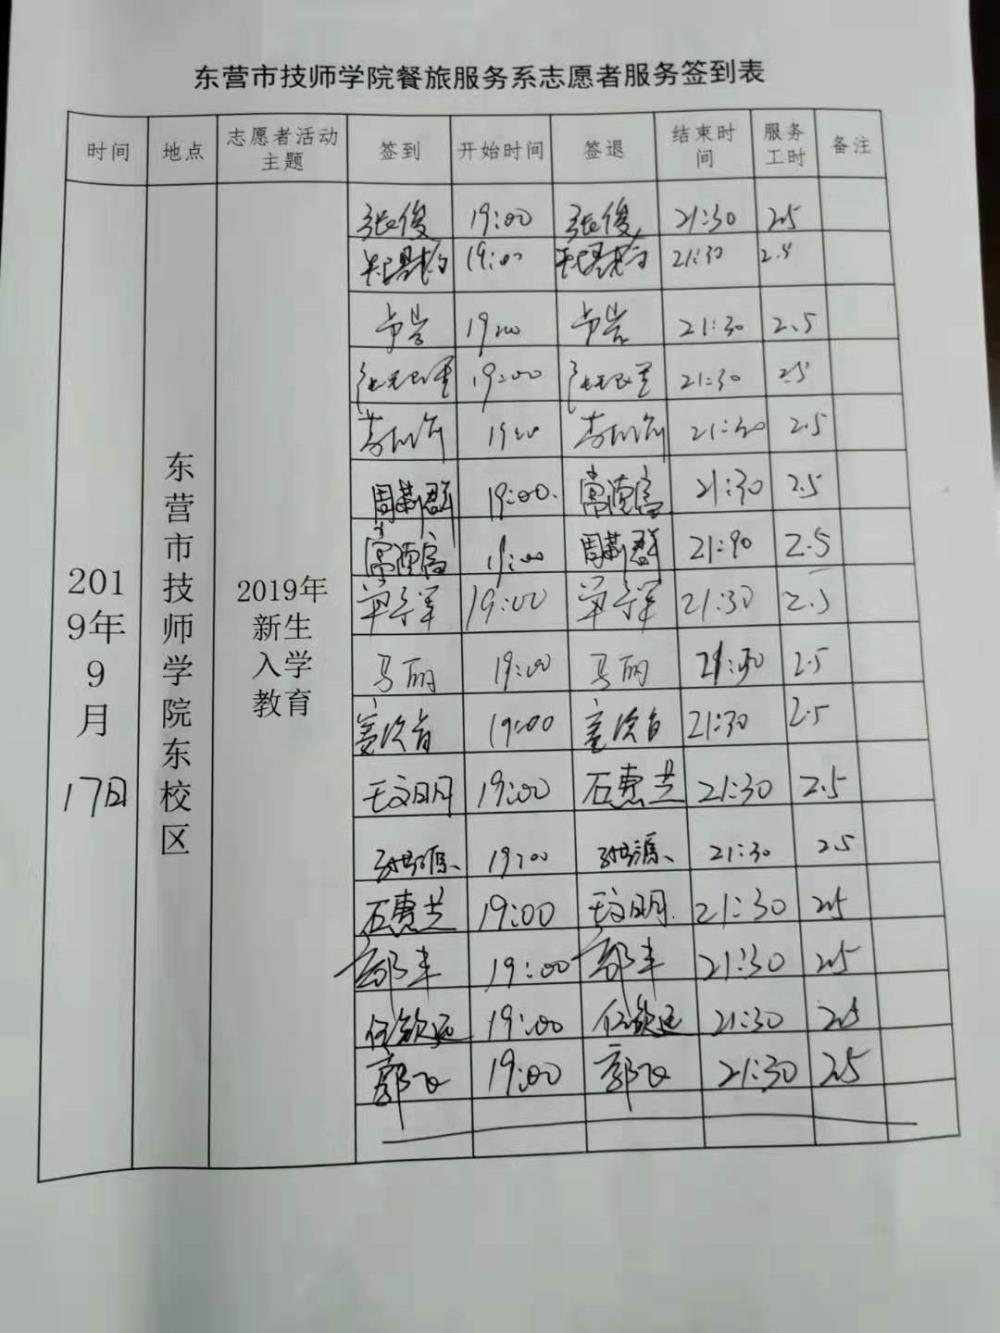 东营市技师学院餐旅服务系志愿者服务签到表
时间 地点 志愿者活动主题 签到 开始时间 签退 结束时间 服务工时 备注
2019年9月17日
东营市技师学院东校区
2019年新生入学教育
张俊 19:00 张俊 21:30 2.5
19:00 21:30 2.5
19:00 21:30 2.5
19:00 21:30 2.5
19:00 21:30 2.5
周新群 19:00 21:30 2.5
19:00 周新群 21:30 2.5
单子军 19:00 单子军 21:30 2.5
马丽 19:00 马丽 21:30 2.5
19:00 21:30 2.5
王文明 19:00 石惠芝 21:30 2.5
19:00 21:30 2.5
石惠芝 19:00 王文明 21:30 2.5
19:00 21:30 2.5
任钦远 19:00 任钦远 21:30 2.5
郭飞 19:00 郭飞 21:30 2.5